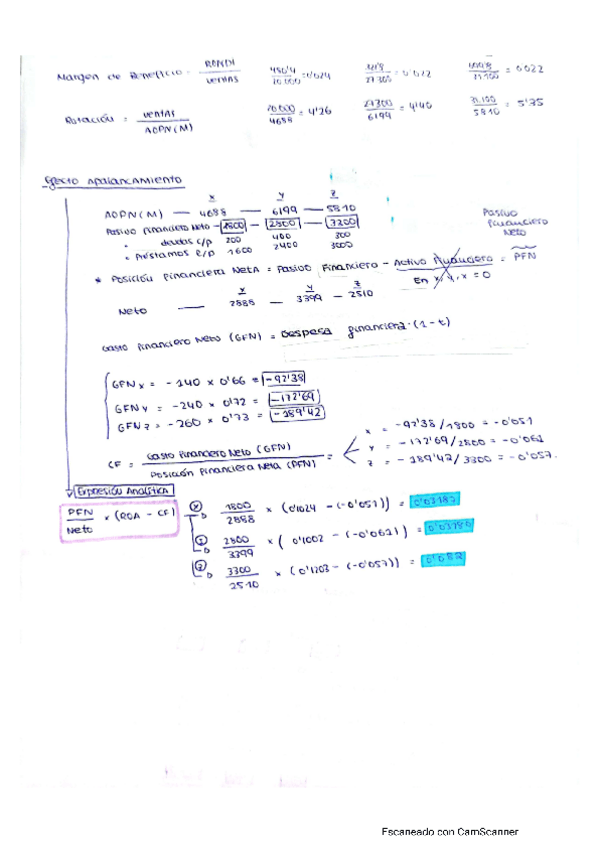 Margen de Beneficio = RONDI / ventas 480'4 / 20 000 = 0'024 / 27 300 = 0'022 / 31 100 = 0'022
Rotación = ventas / AOPN(M) 20 000 / 4688 = 4'26 27 300 / 6199 = 4'40 31.100 / 5810 = 5'35
Efecto Apalancamiento
x y z
AOPN(M) — 4688 — 6199 — 5810
Pasivo Financiero Neto - 1800 - 2800 - 3300
• deudas c/p 200 400 300
• Préstamos l/p 1600 2400 3000
Pasivo Financiero Neto
* Posición Financiera Neta = Pasivo Financiero - Activo Financiero = PFN
En x, y, x = 0
x y z
Neto — 2888 — 3399 — 2510
Gasto Financiero Neto (GFN) = Despesa financiera · (1 - t)
GFN x = - 140 x 0'66 = -92'38
GFN y = - 240 x 0'72 = -172'69
GFN z = - 260 x 0'73 = -189'42
CF = Gasto Financiero Neto (GFN) / Posición Financiera Neta (PFN) =
x = -92'38 / 1800 = -0'051
y = -172'69 / 2800 = -0'061
z = -189'42 / 3300 = -0'057.
Expresión Analítica
PFN / Neto x (ROA - CF)
x 1800 / 2888 x (0'1024 - (-0'051)) = 0'03187
y 2800 / 3399 x ( 0'1002 - (-0'0621) ) = 0'03186
z 3300 / 2510 x ( 0'1203 - (-0'057)) = 0'082
Escaneado con CamScanner